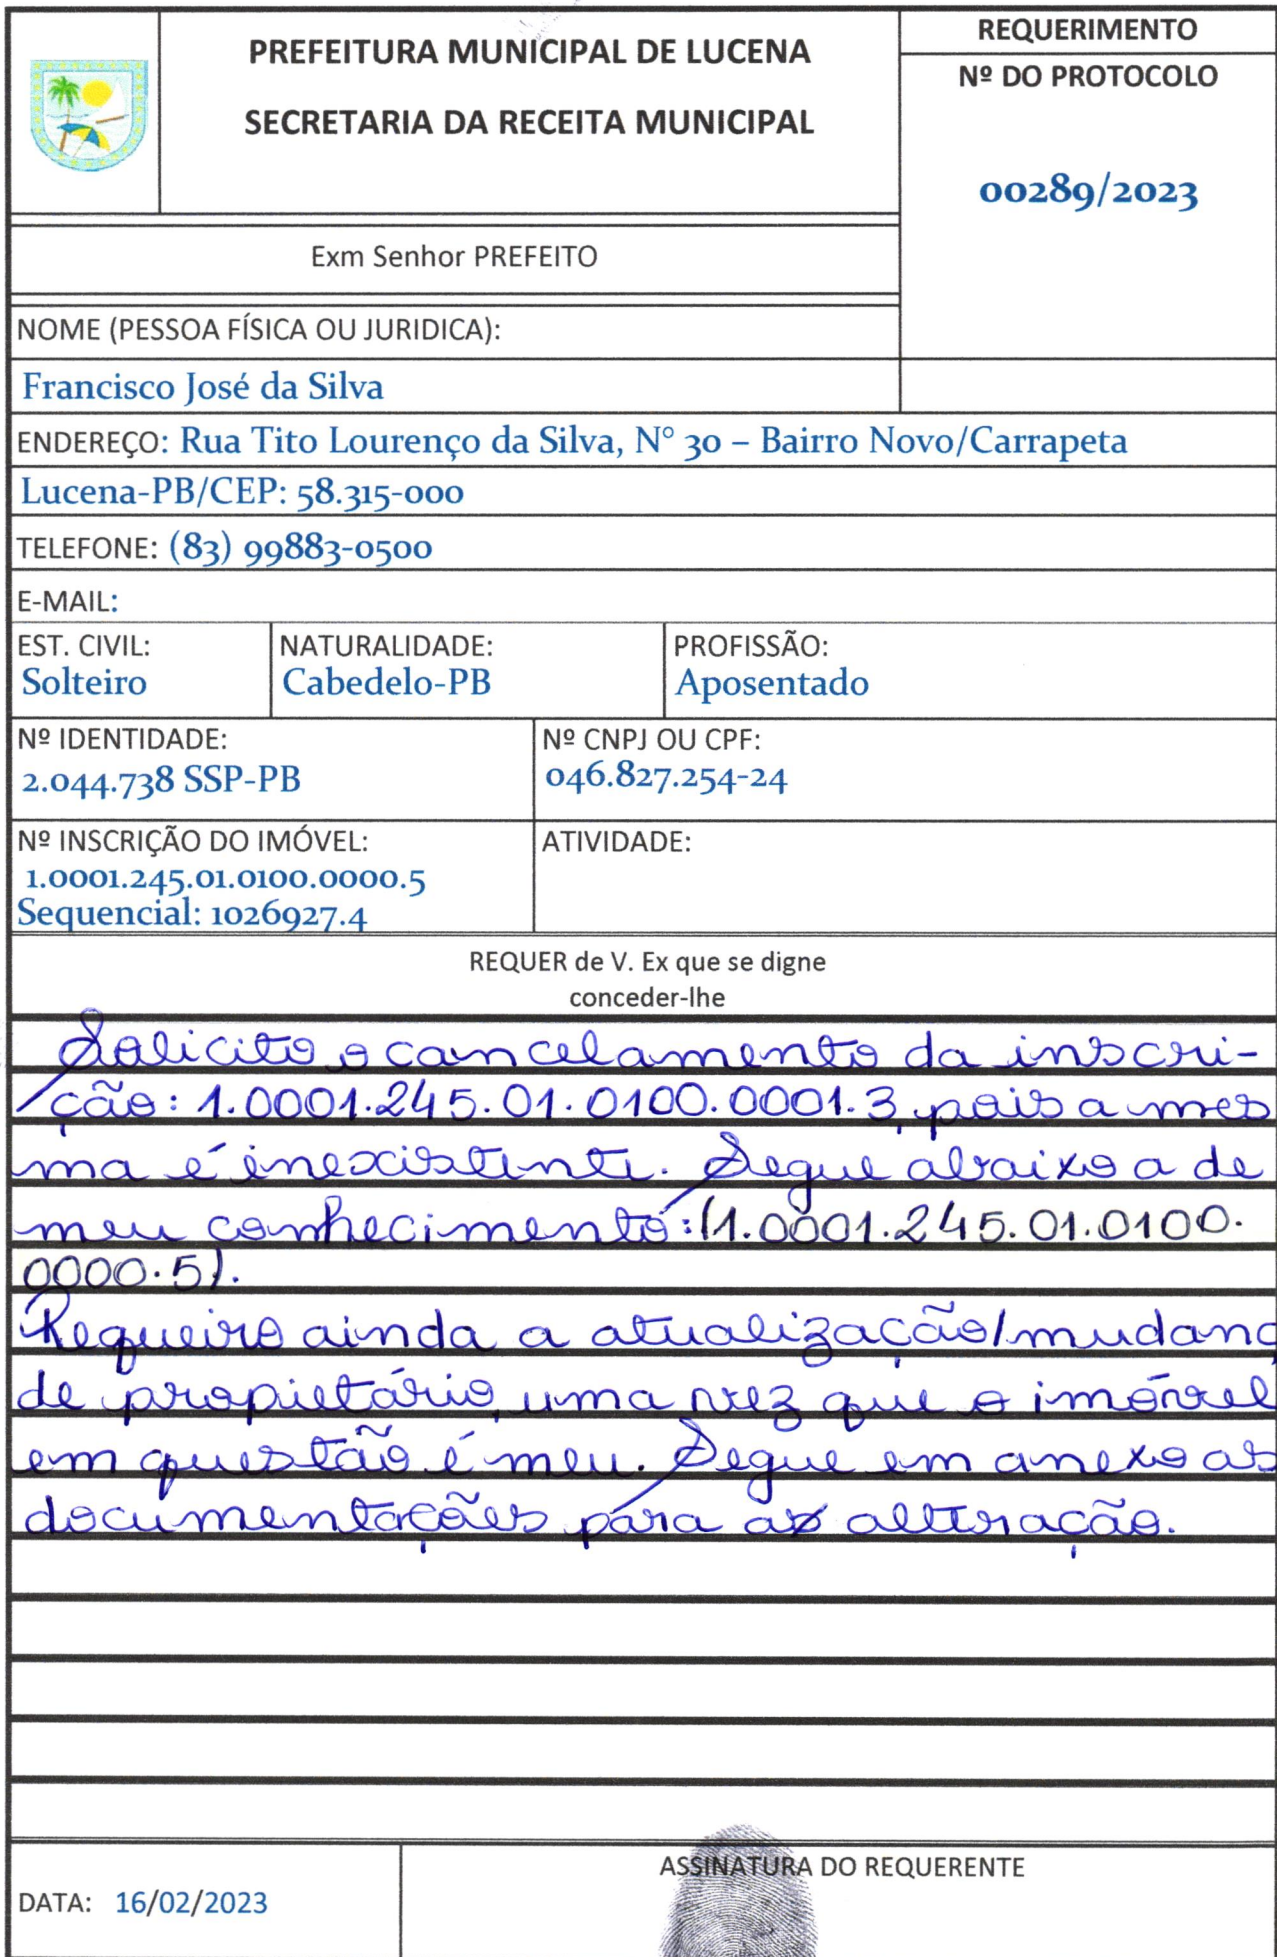 PREFEITURA MUNICIPAL DE LUCENA
SECRETARIA DA RECEITA MUNICIPAL
REQUERIMENTO
Nº DO PROTOCOLO
00289/2023
Exm Senhor PREFEITO
NOME (PESSOA FÍSICA OU JURIDICA):
Francisco José da Silva
ENDEREÇO: Rua Tito Lourenço da Silva, N° 30 – Bairro Novo/Carrapeta
Lucena-PB/CEP: 58.315-000
TELEFONE: (83) 99883-0500
E-MAIL:
EST. CIVIL:
Solteiro
NATURALIDADE:
Cabedelo-PB
PROFISSÃO:
Aposentado
Nº IDENTIDADE:
2.044.738 SSP-PB
Nº CNPJ OU CPF:
046.827.254-24
Nº INSCRIÇÃO DO IMÓVEL:
1.0001.245.01.0100.0000.5
Sequencial: 1026927.4
ATIVIDADE:
REQUER de V. Ex que se digne
conceder-lhe
Solicito o cancelamento da inscri-
ção: 1.0001.245.01.0100.0001.3, pois a mes
ma é inexistente. Segue abaixo a de
meu conhecimento: (1.0001.245.01.0100.
0000.5).
Requeiro ainda a atualização/mudanç
de propietário, uma vez que o imóvel
em questão é meu. Segue em anexo as
documentações para as alteração.
DATA: 16/02/2023
ASSINATURA DO REQUERENTE